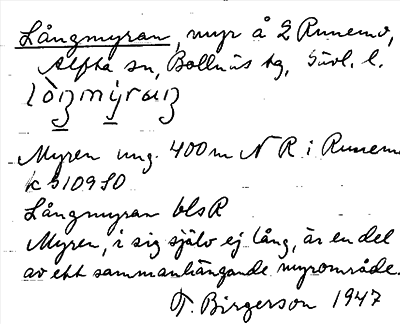 Långmyran, myr å 2 Runemo,
Alfta sn, Bollnäs tg, Gävl. l.
Myren ung. 400 m N R i Runemo
k 510980
Långmyran bls R
Myren, i sig själv ej lång, är en del
av ett sammanhängande myrområde.
T. Birgerson 1947